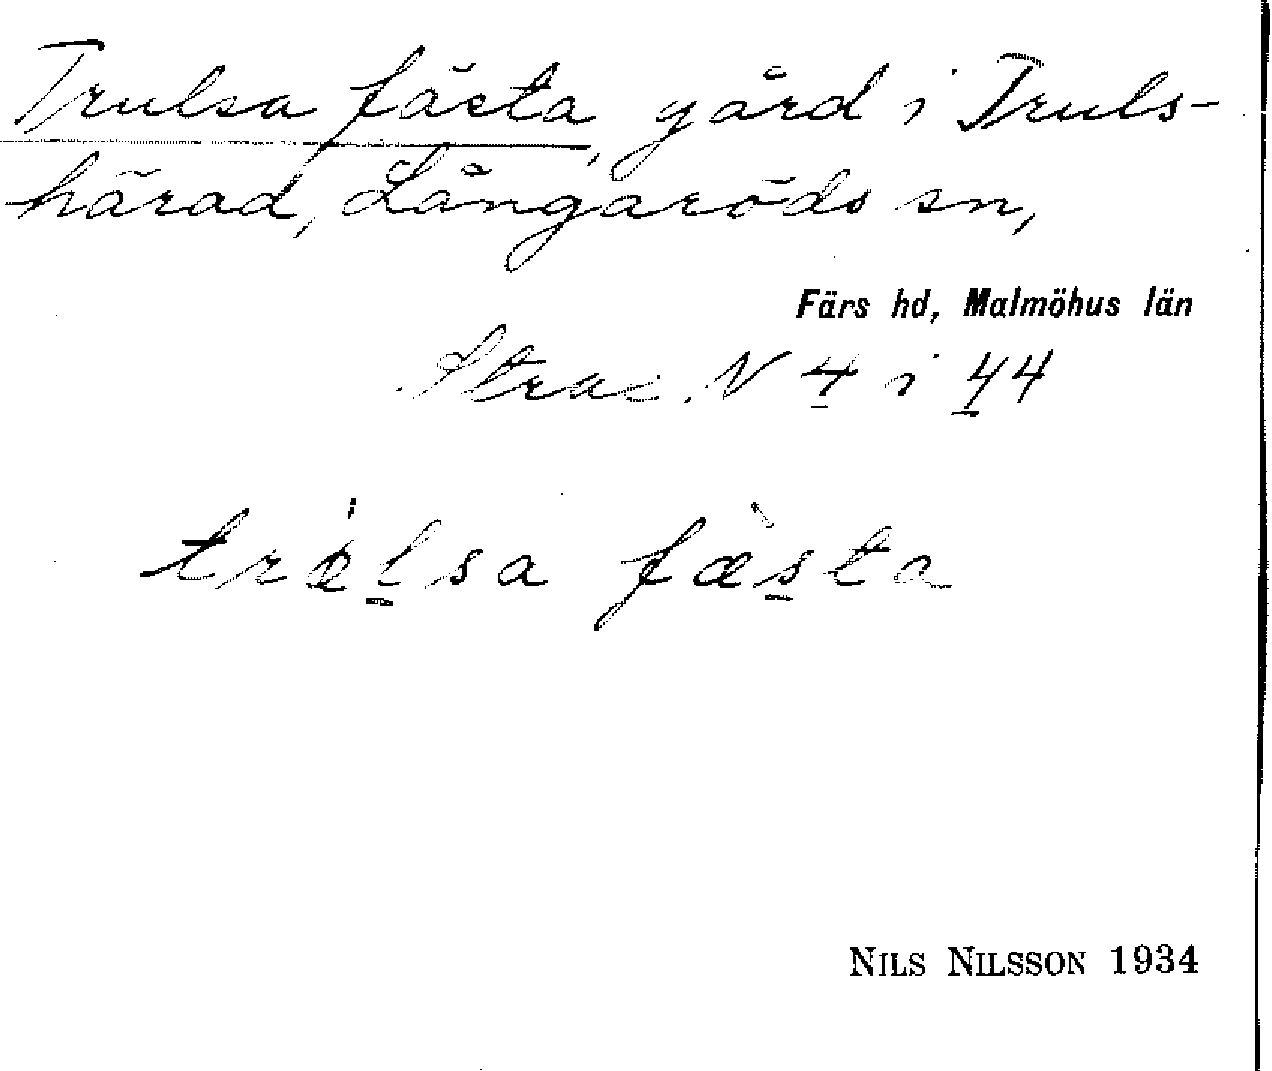 Trulsa fästa, gård i Truls-
härad, Långaröds sn,
Färs hd, Malmöhus län
N 4 i 44
fæsta
NILS NILSSON 1934